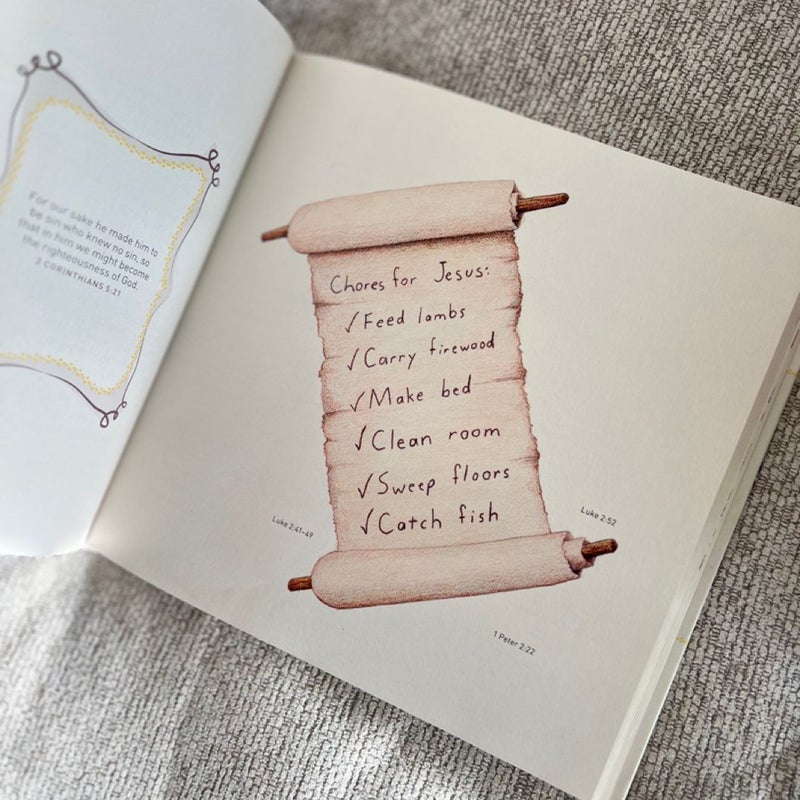 For our sake he made him to
be sin who knew no sin, so
that in him we might become
the righteousness of God.
2 CORINTHIANS 5:21
Chores for Jesus:
✓Feed lambs
✓Carry firewood
✓Make bed
✓Clean room
✓Sweep floors
✓Catch fish
Luke 2:41–49
Luke 2:52
1 Peter 2:22